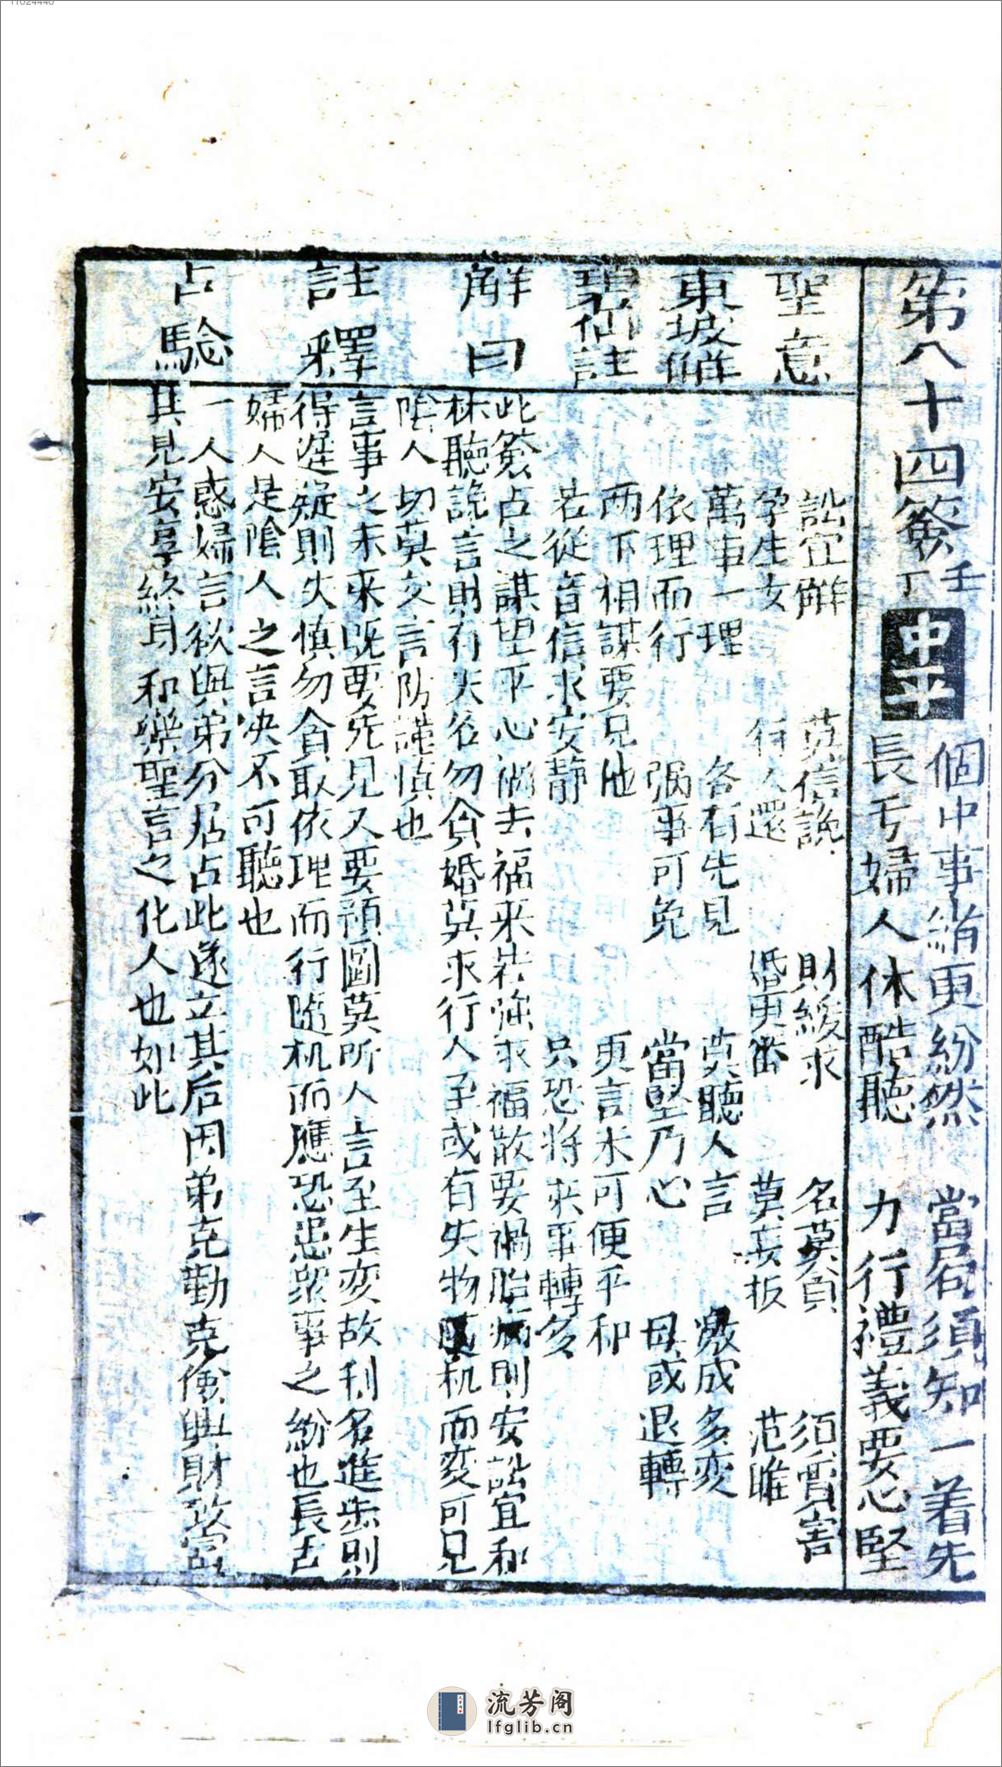 11024440
第八十四簽 壬丁 中平
個中事緒更紛然 當局須知一着先
長亏婦人休酷聽 力行禮義要心堅
聖意
訟宜解 莫信說 財緩求 名莫貪 須
孕生女 行人還 婚更審 莫妄扳
東坡解
萬事一理 各有先見 莫聽人言 激成多変
依理而行 禍事可免 當堅乃心 毋或退轉
碧仙註
兩下相謀要見他 更言未可便平和
若從音信求安靜 只恐將來事轉多
解曰
此簽占之謀望平心 去福来若強求福散要禍胎病則安訟宜和
林聽說言財有失名勿貪婚莫求行人子或有失物 机而変可見
陰人切莫交言防謹慎也
註釋
言事之未來既要先見又要預圖莫所人言至生変故利名進步則
得遲疑則失慎勿貪取依理而行隨机而應恐患眾事之紛也長舌
婦人是陰人之言决不可聽也
占驗
一人惑婦言欲與弟分居占此遂立其后因弟克勤克儉興財致富
其見安享終身和樂聖言之化人也如此
流芳阁
lfglib.cn